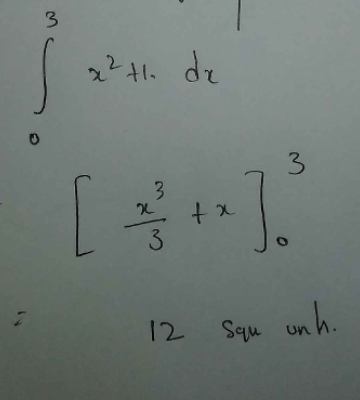 ∫₀³ x² + 1. dx
[ x³/3 + x ]₀³
= 12 squ unh.